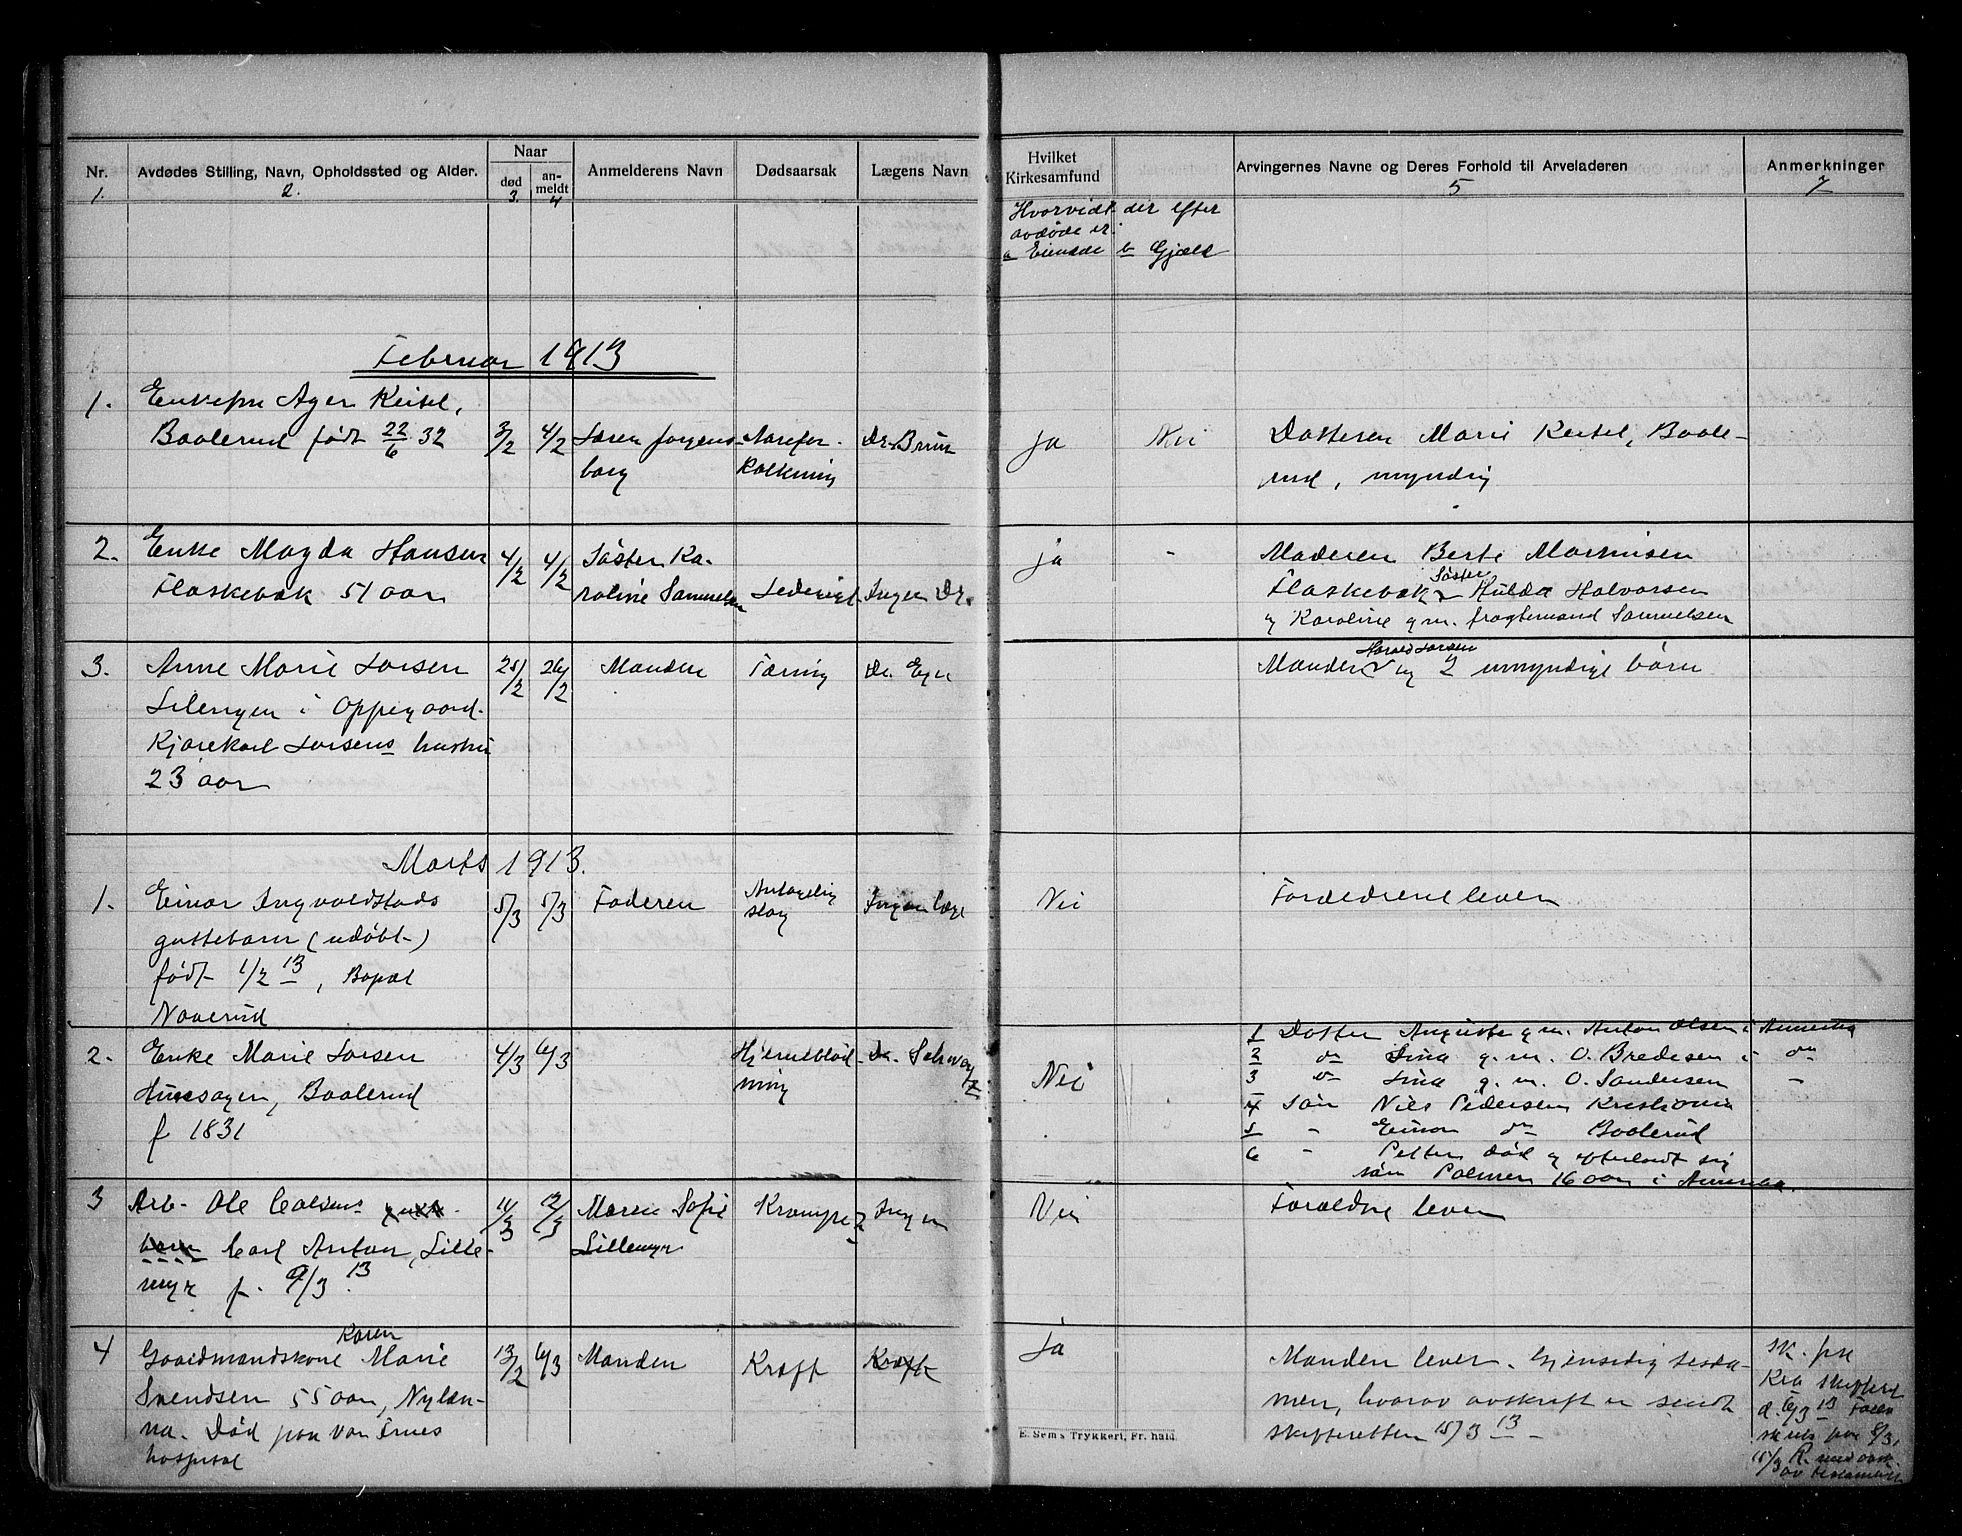 Nr.
Avdødes Stilling, Navn, Opholdssted og Alder.
Naar
død
an-
meldt
Anmelderens Navn
Dødsaarsak
Lægens Navn
Hvilket
Kirkesamfund
Arvingernes Navne og Deres Forhold til Arveladeren
Anmerkninger
1. 2. 3. 4 5 7
Hvorvidt der efter
avdøde er:
a Eiendele b Gjæld
Februar 1913
1.
Enkefru Ager Keisel,
Baalerud født 22/6 32
3/2
4/2
Søren Jørgens-
borg
Aarefor-
kalkning
Dr. Bruun
ja
Nei
Datteren Marie Keisel, Baale-
rud, myndig
2.
Enke Magda Hansen
Flaskebæk 51 aar
4/2
4/2
Søster Ka-
roline Samuelsen
Ingen Dr.
ja
-
Moderen Berte
Flaskebæk Søster Hulda Halvorsen
og Karoline g.m. fragtemand Samuelsen
3.
Anne Marie Larsen
i Oppegaard.
Kjørekarl Larsens hustru
23 aar
25/2
26/2
Manden
Tæring
Dr.
Manden Harald Larsen og 2 umyndige børn
Marts 1913.
1.
Einar Ingvaldstads
guttebarn (udøbt)
født 1/2 13, Bopæl
Naaerud
5/3
5/3
Faderen
Antagelig
slag
Ingen læge
Nei
Forældrene lever
2.
Enke Marie Larsen
Baalerud
f 1831
4/3
6/3
Hjerneblød-
ning
Dr. Schwartz
Nei
1 Datter Auguste g.m. Anton Olsen i Amerika
2 do Lina g.m. O. Bredesen i do
3 do Lina g.m. O. Sandersen -
4 Søn Nils Pedersen Kristiania
5 - Einar do Baalerud
6 - Petter død og efterladt sig
søn Palmer 16 aar i Amerika.
3
Arb. Ole Carlsens
Carl Anton, Lille-
myr f. 9/3 13.
11/3
12/3
Maren Sofie
Lillemyr
Krampe
Ingen
Nei
Forældre lever
4
Gaardmandskone Karen Marie
Svendsen 55 aar, Nylæn-
na. Død paa Vor Frues
hospital
13/2
6/3
Manden
Kræft
Kræft
Ja
Manden lever. Gjensidig testa-
men, hvorav avskrift er sendt
skifteretten 15/3 13
sk. fra
Kra skifteret
d. 6/3 13
15/3
av testament
E. Sem's Trykkeri, Fr.hald.